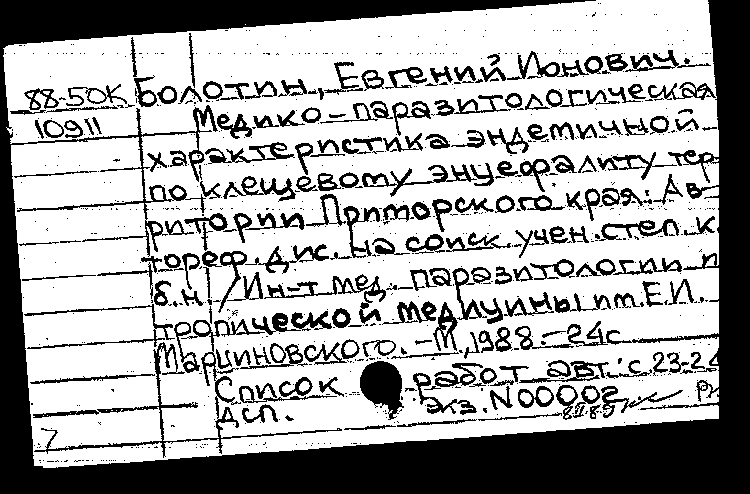 88-50К Болотин, Евгений Ионович.
10911 Медико-паразитологическая
характеристика эндемичной
по клещевому энцефалиту тер-
ритории Приморского края: Ав-
тореф. дис. на соиск. учен. степ. к.
б.н. /Ин-т мед. паразитологии и
тропической медицины им. Е.И.
Марциновского. - М, 1988. - 24с
Список работ авт.: с. 23-24
дсп. экз. N00002
7